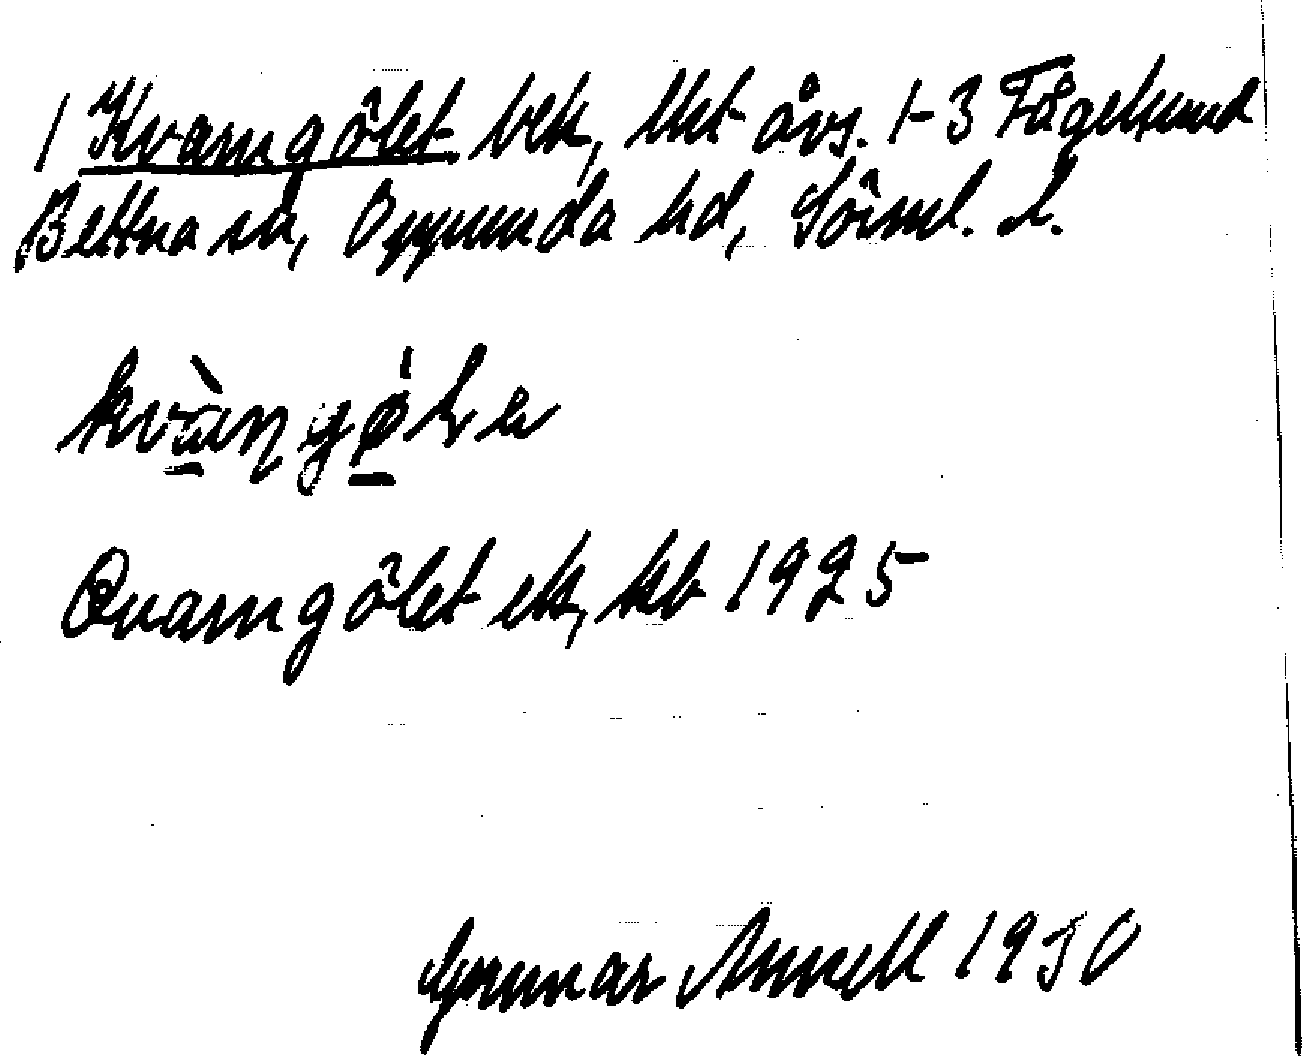 1 Kvarngölet bek, lht åvs. 1-3 Fågelsund
Bettna sn, Oppunda hd, Sörml. l.
kvàŋgǿLe
Qvarngölet ek, kb 1925
Gunnar Annell 1930